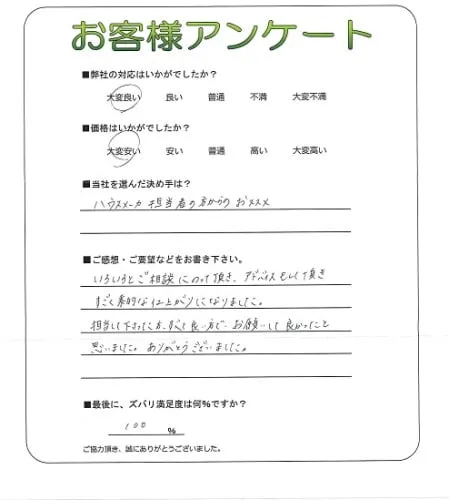 お客様アンケート
■弊社の対応はいかがでしたか？
大変良い 良い 普通 不満 大変不満
■価格はいかがでしたか？
大変安い 安い 普通 高い 大変高い
■当社を選んだ決め手は？
ハウスメーカ担当者の方からのおススメ
■ご感想・ご要望などをお書き下さい。
いろいろとご相談にのって頂き、アドバイスもして頂き
すごく素的な仕上がりになりました。
担当して下さった方、すべて良い方で、お願いして良かったと
思いました。ありがとうございました。
■最後に、ズバリ満足度は何%ですか？
100 %
ご協力頂き、誠にありがとうございました。